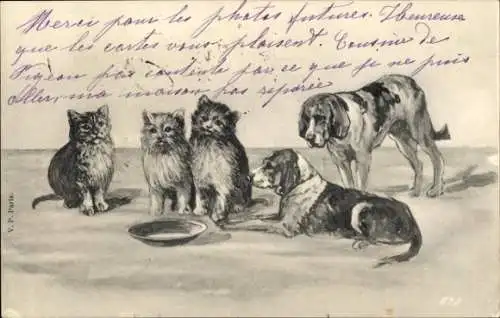 Merci pour les photos futures. Heureuse
que les cartes vous plaisent. Cousine de
pas contente par ce que je ne puis
aller, ma maison pas réparée
V. P. Paris.